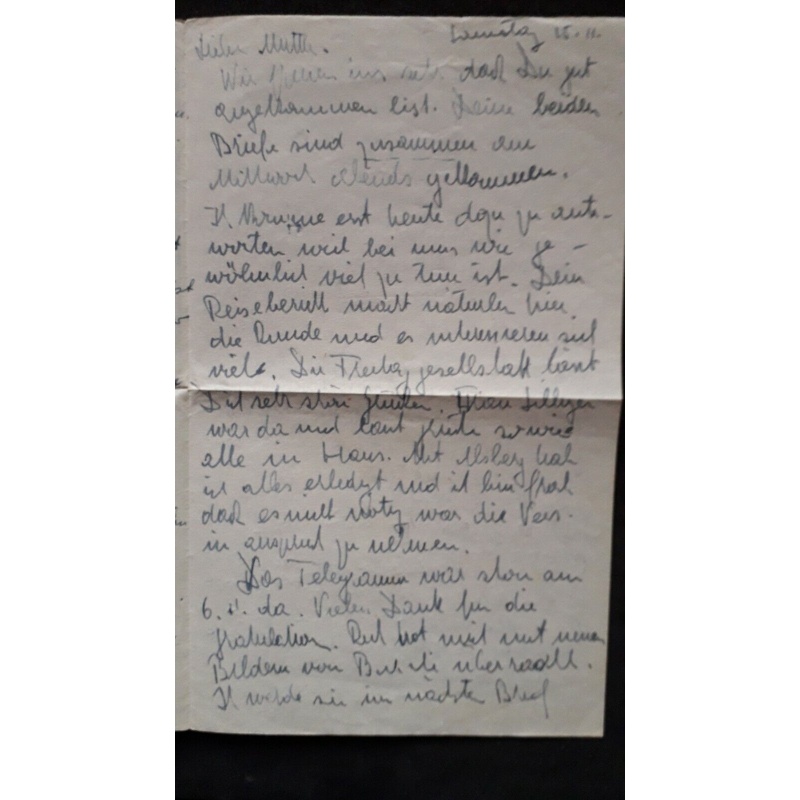 Samstag 15. 11.
Liebe Mutter.
Wir freuen uns sehr daß Du gut
angekommen bist. Deine beiden
Briefe sind zusammen am
Mittwoch abends gekommen.
Ich komme erst heute dazu zu ant-
worten weil bei uns wie ge-
wöhnlich viel zu tun ist. Dein
Reisebericht macht natürlich hier
die Runde und es interessieren sich
viele. Die Freitaggesellschaft lässt
Dich sehr schön grüßen. Frau
war da und lässt grüßen sowie
alle im Haus. Mit hab
ich alles erledigt und ich bin froh
daß es nicht nötig war die Vers.
in anspruch zu nehmen.
Das Telegramm war schon am
6. 11. da. Vielen Dank für die
gratulation. hat mich mit neuen
Bildern von überrascht.
Ich werde sie im nächsten Brief